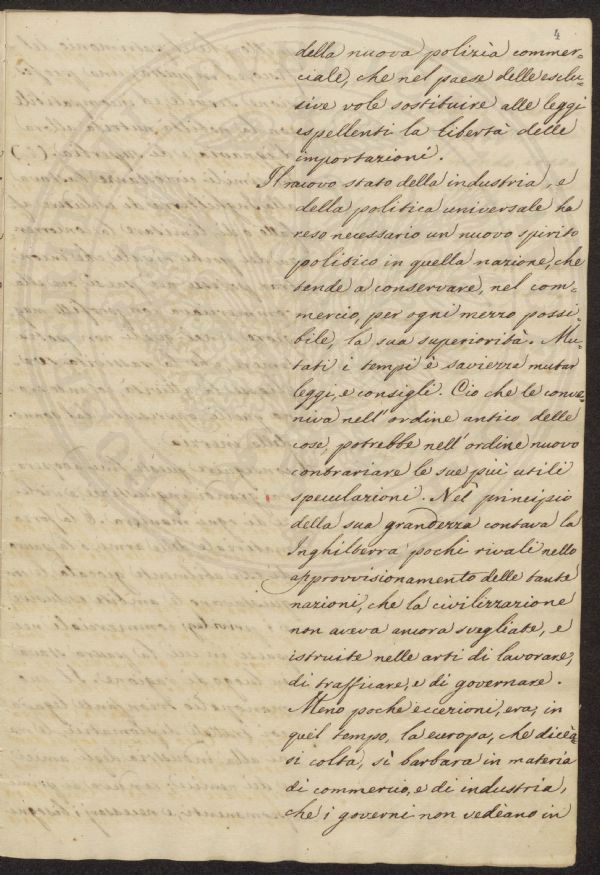 4
della nuova polizia commer-
ciale, che nel paese delle esclu-
sive vole sostituire alle leggi
espellenti la libertà delle
importazioni.
Il nuovo stato della industria, e
della politica universale ha
reso necessario un nuovo spirito
politico in quella nazione, che
tende a conservare, nel com-
mercio, per ogni mezzo possi-
bile, la sua superiorità. Mu-
tati i tempi è saviezza mutar
leggi, e consigli. Cio che le conve-
niva nell'ordine antico delle
cose, potrebbe nell'ordine nuovo
contrariare le sue più utili
speculazioni. Nel principio
della sua grandezza contava la
Inghilterra pochi rivali nello
approvvisionamento delle tante
nazioni, che la civilizzazione
non aveva ancora svegliate, e
istruite nelle arti di lavorare,
di trafficare, e di governare.
Meno poche eccezioni, era, in
quel tempo, la europa, che dicea-
si colta, sì barbara in materia
di commercio, e di industria,
che i governi non vedèano in